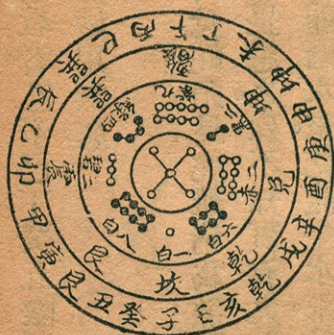 午丁未坤申庚酉辛戌乾亥壬子癸丑艮寅甲卯乙辰巽巳丙
離坤兌乾坎艮震巽
九紫
二黑
七赤
六白
一白
八白
三碧
四綠